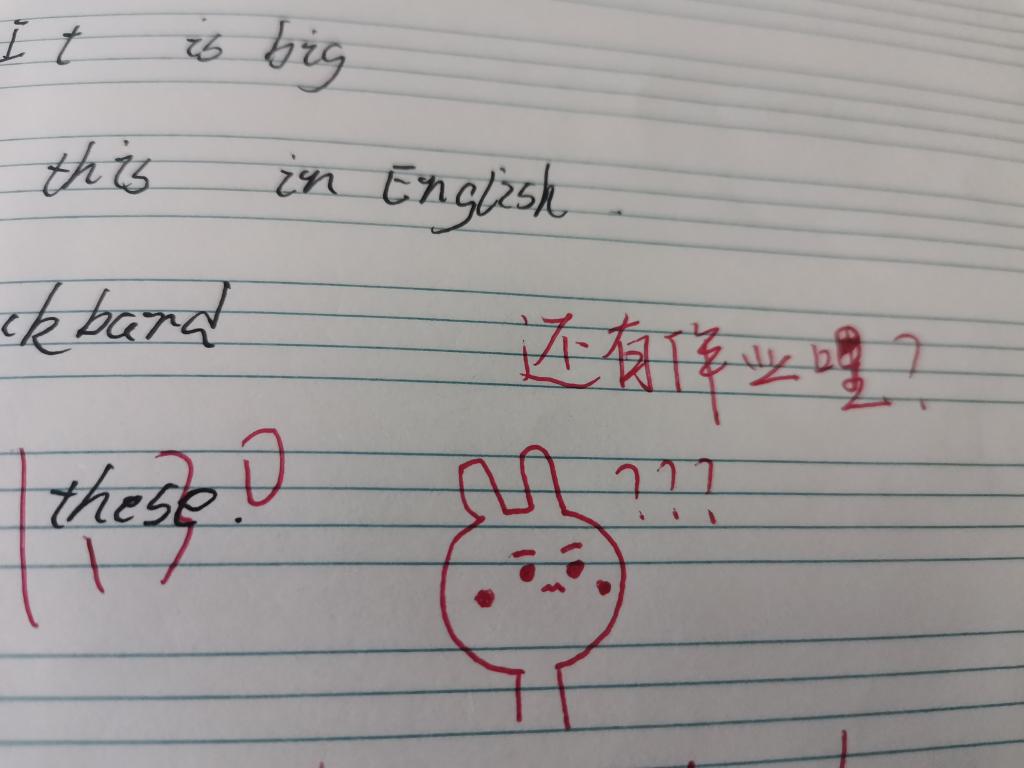 It is big
this in English.
ckband
还有作业哩?
these.
???